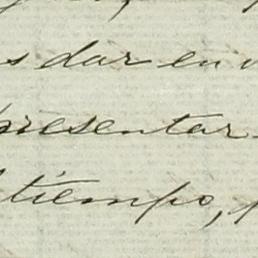 s dar en
presentar
tiempo,